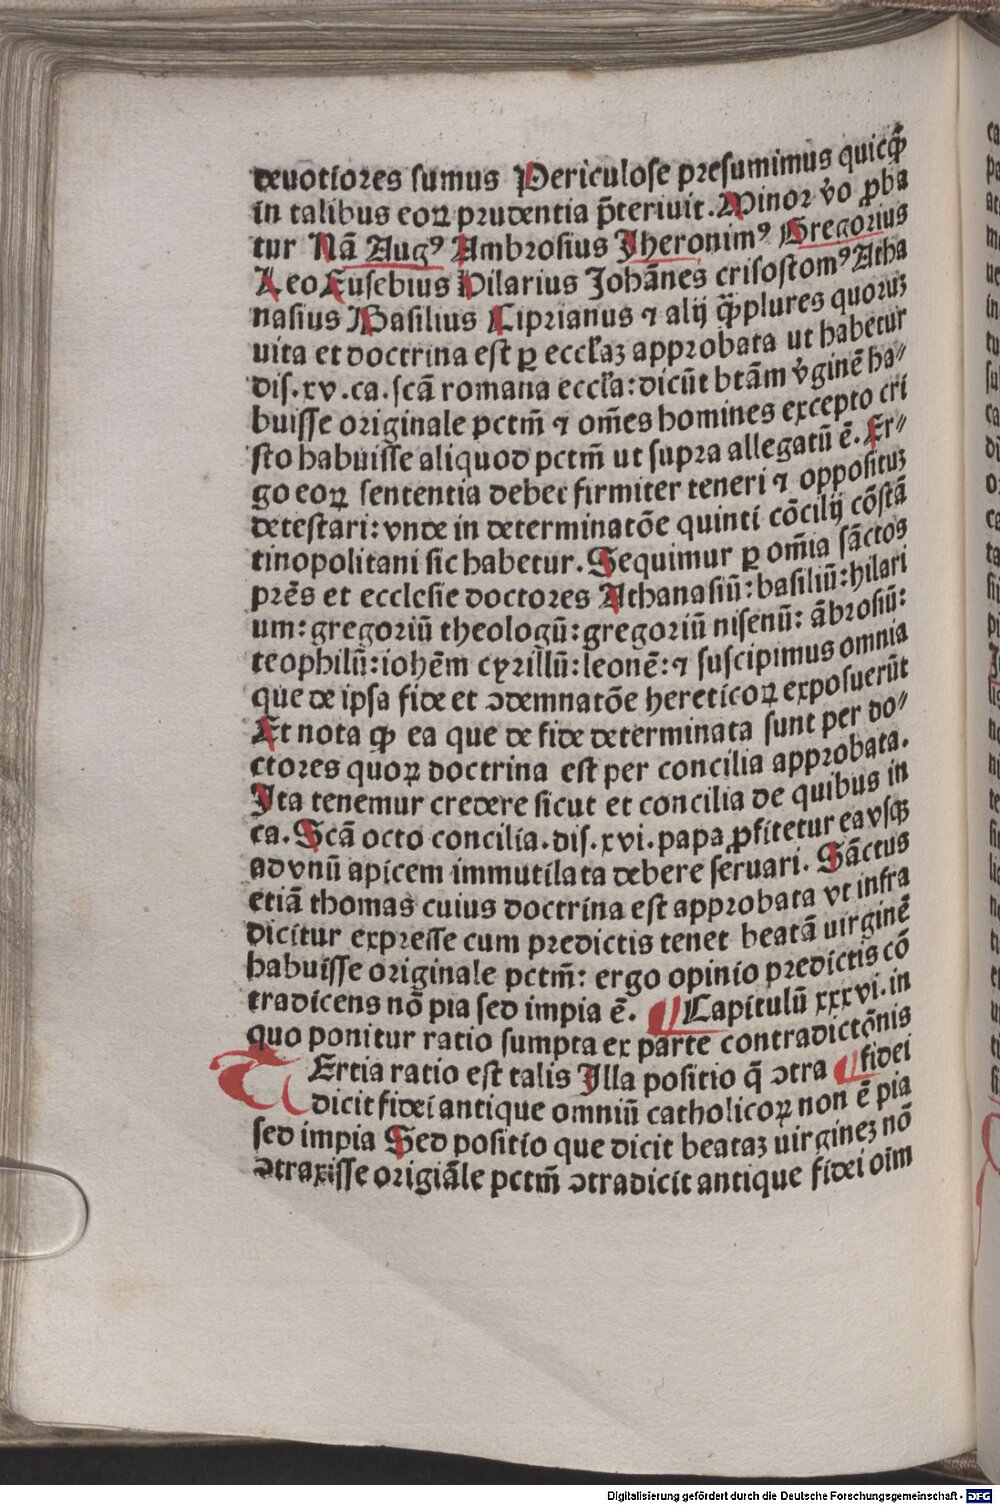 deuotiores sumus Periculose presumimus quicq̃
in talibus eoꝝ prudentia p̃teriuit. Minor v̾o ꝓba
tur Nã Augꝰ Ambrosius Jheronimꝰ Gregorius
Leo Eusebius Hilarius Johãnes crisostomꝰ Atha
nasius Basilius Ciprianus ⁊ alij q̃plures quoruꝫ
uita et doctrina est ꝑ eccl̃aꝫ approbata ut habetur
dis. xv. ca. scã romana eccl̃a: dicũt btãm v̾ginẽ ha⸗
buisse originale pctm̃ ⁊ om̃es homines excepto cri
sto habuisse aliquod pctm̃ ut supra allegatũ ẽ. Er⸗
go eoꝝ sententia debet firmiter teneri ⁊ opposituꝫ
detestari: vnde in determinatõe quinti cõcilij cõstã
tinopolitani sic habetur. Sequimur ꝑ om̃ia sãctos
prẽs et ecclesie doctores Athanasiũ: basiliũ: hilari
um: gregoriũ theologũ: gregoriũ nisenũ: ãbrosiũ:
teophilũ: iohẽm cyrillũ: leonẽ: ⁊ suscipimus omnia
que de ipsa fide et ↄdemnatõe hereticoꝝ exposuerũt
Et nota ꝙ ea que de fide determinata sunt per do⸗
ctores quoꝝ doctrina est per concilia approbata.
Ita tenemur credere sicut et concilia de quibus in
ca. Scã octo concilia. dis. xvi. papa ꝓfitetur ea vsqꝫ
ad vnũ apicem immutilata debere seruari. Sãctus
etiã thomas cuius doctrina est approbata vt infra
dicitur expresse cum predictis tenet beatã uirginẽ
habuisse originale pctm̃: ergo opinio predictis cõ
tradicens nõ pia sed impia ẽ. ¶ Capitulũ xxxvi. in
quo ponitur ratio sumpta ex parte contradictõnis
TErtia ratio est talis Illa positio q̃ ↄtra ¶ fidei
dicit fidei antique omniũ catholicoꝝ non ẽ pia
sed impia Sed positio que dicit beataꝫ uirgineꝫ nõ
ↄtraxisse origiãle pctm̃ ↄtradicit antique fidei oim
Digitalisierung gefördert durch die Deutsche Forschungsgemeinschaft - DFG